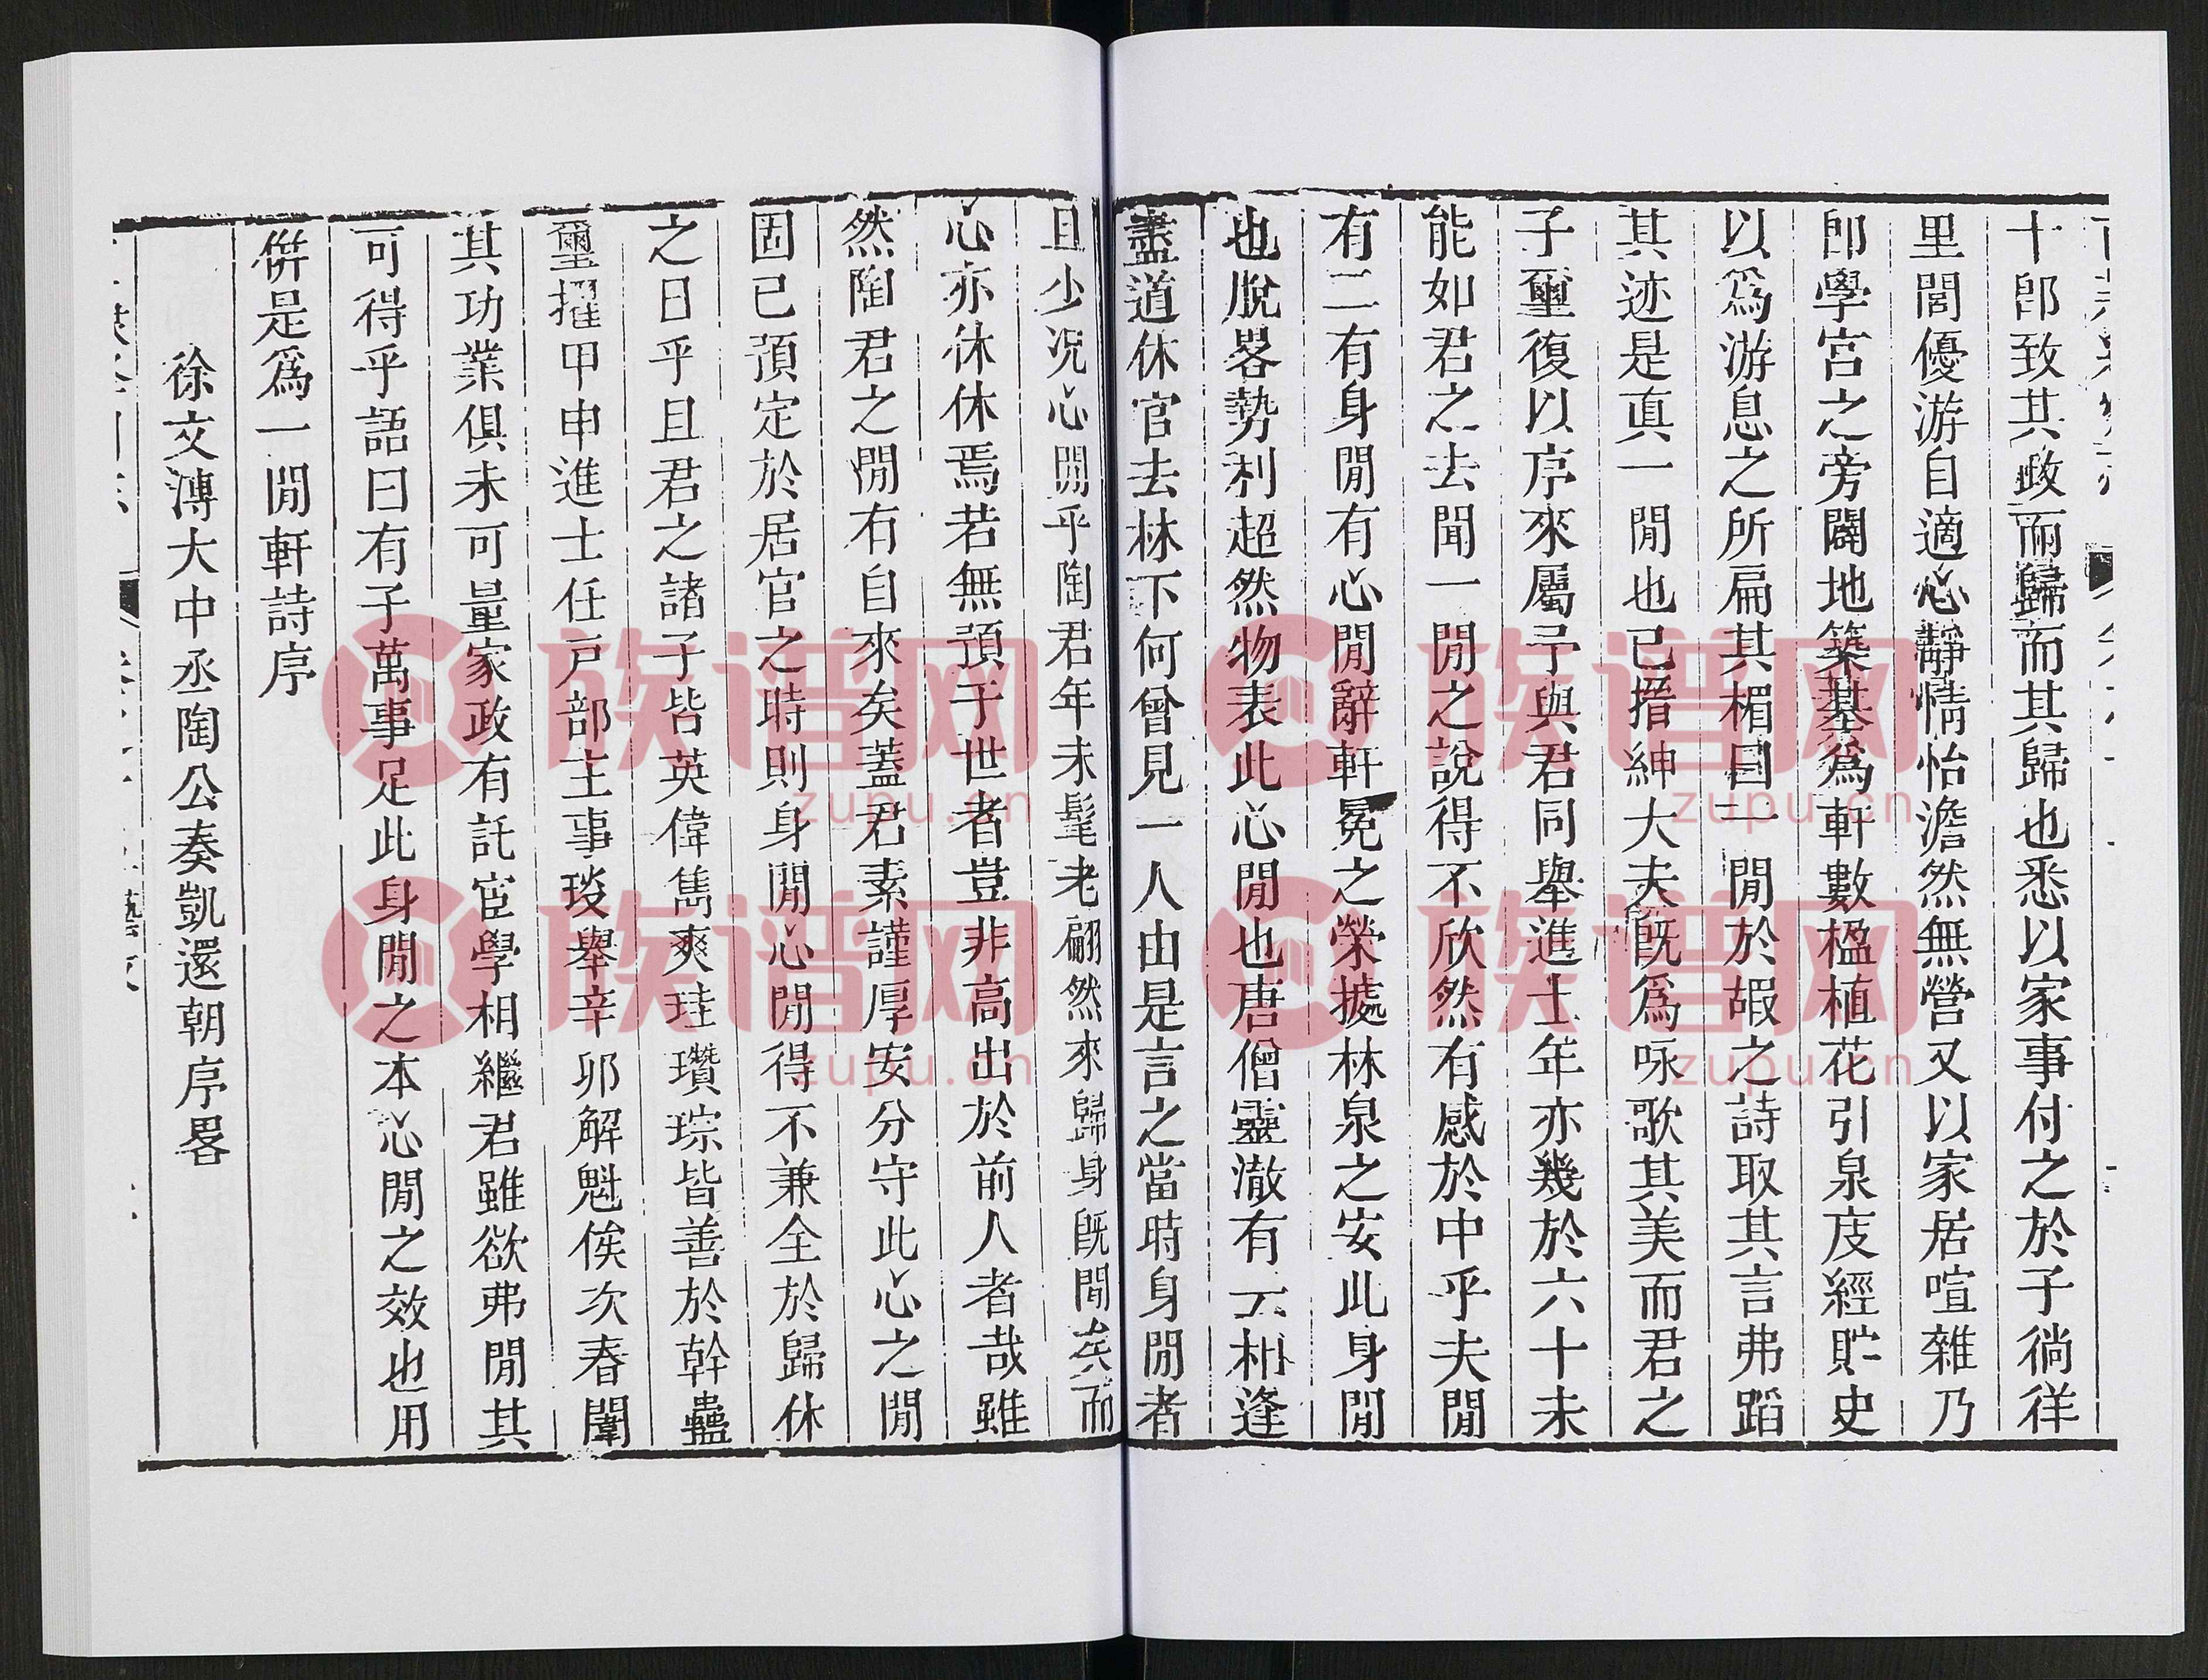 十即致其政而歸而其歸也悉以家事付之於子徜徉
里閭優游自適心靜情怡澹然無營又以家居喧雜乃
卽學宮之旁闢地築基爲軒數楹植花引泉庋經貯史
以爲游息之所扁其楣曰一閒於嘏之詩取其言弗蹈
其迹是真一閒也已搢紳大夫旣爲咏歌其美而君之
子璽復以序來屬予與君同舉進士年亦幾於六十未
能如君之去聞一閒之說得不欣然有感於中乎夫閒
有二有身閒有心閒辭軒冕之榮據林泉之安此身閒
也脫畧勢利超然物表此心閒也唐僧靈澈有云相逢
盡道休官去林下何曾見一人由是言之當時身閒者
且少况心閒乎陶君年未髦老翩然來歸身旣閒矣而
心亦休休焉若無預于世者豈非高出於前人者哉雖
然陶君之閒有自來矣蓋君素謹厚安分守此心之閒
固已預定於居官之時則身閒心閒得不兼全於歸休
之日乎且君之諸子皆英偉雋爽珪瓚琮皆善於幹蠱
璽擢甲申進士任戸部主事琰舉辛卯解魁俟次春闈
其功業俱未可量家政有託宦學相繼君雖欲弗閒其
可得乎語曰有子萬事足此身閒之本心閒之效也用
併是爲一閒軒詩序
徐文溥大中丞陶公奏凱還朝序畧
族谱网
zupu.cn
族谱网
zupu.cn
族谱网
zupu.cn
族谱网
zupu.cn